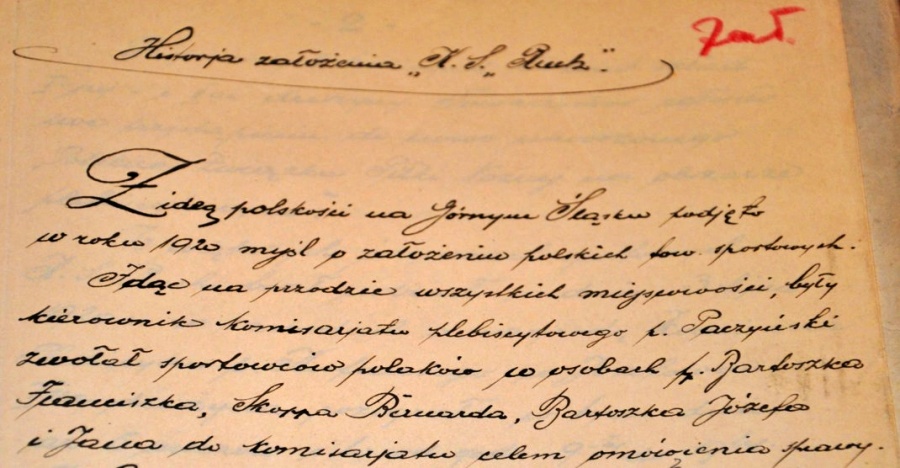 Zał.
Historja założenia „K. S. „Ruch".
Z ideą polskości na Górnym Śląsku podjęto
w roku 1920 myśl o założeniu polskich tow. sportowych.
Idąc na przodzie wszystkich miejscowości, były
kierownik komisarjatu plebiscytowego p. Paczyński
zwołał sportowców polaków w osobach pp. Bartoszka
Franciszka, Skoppa Bernarda, Bartoszka Józefa
i Jana do komisarjatu celem omówienia sprawy.